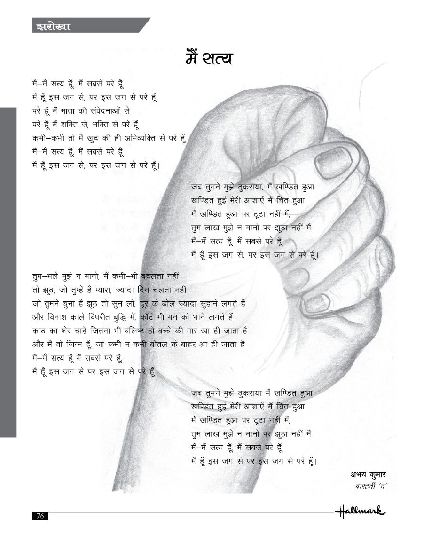 झरोखा
मैं सत्य
मैं–मैं सत्य हूँ, मैं सबसे परे हूँ
मैं हूँ इस जग से, पर इस जग से परे हूँ
परे हूँ मैं माता की संवेदनाओं से
परे हूँ मैं शक्ति से, भक्ति से परे हूँ
कभी–कभी तो मैं खुद की ही अभिव्यक्ति से परे हूँ
मैं–मैं सत्य हूँ, मैं सबसे परे हूँ
मैं हूँ इस जग से, पर इस जग से परे हूँ।
जब तुमने मुझे ठुकराया, मैं खण्डित हुआ
खण्डित हुई मेरी आशाएँ मैं चित हुआ
मैं खण्डित हुआ पर टूटा नहीं मैं,
तुम लाख मुझे न मानो पर झूठा नहीं मैं
मैं–मैं सत्य हूँ, मैं सबसे परे हूँ
मैं हूँ इस जग से, पर इस जग से परे हूँ।
तुम–भले मुझे न मानो, मैं कभी–भी बदलता नहीं
तो झूठ, जो तुम्हें है प्यारा, ज्यादा दिन चलता नहीं
जो तुमने चुना है झूठ तो सुन लो, दूर के ढोल ज्यादा सुहाने लगते हैं
और विनाश काले विपरीत बुद्धि में, काँटे भी मन को भाने लगते हैं
काठ का शेर चाहे जितना भी बलिष्ठ हो बच्चे की मार खा ही जाता है
और मैं वो जिन्न हूँ, जो कभी न कभी बोतल के बाहर आ ही जाता है
मैं–मैं सत्य हूँ मैं सबसे परे हूँ,
मैं हूँ इस जग से पर इस जग से परे हूँ
जब तुमने मुझे ठुकराया मैं खण्डित हुआ
खण्डित हुई मेरी आशाएँ मैं चित हुआ
मैं खण्डित हुआ पर टूटा नहीं मैं,
तुम लाख मुझे न मानो पर झूठा नहीं मैं
मैं–मैं सत्य हूँ, मैं सबसे परे हूँ
मैं हूँ इस जग से पर इस जग से परे हूँ।
अभय कुमार
76
Hallmark